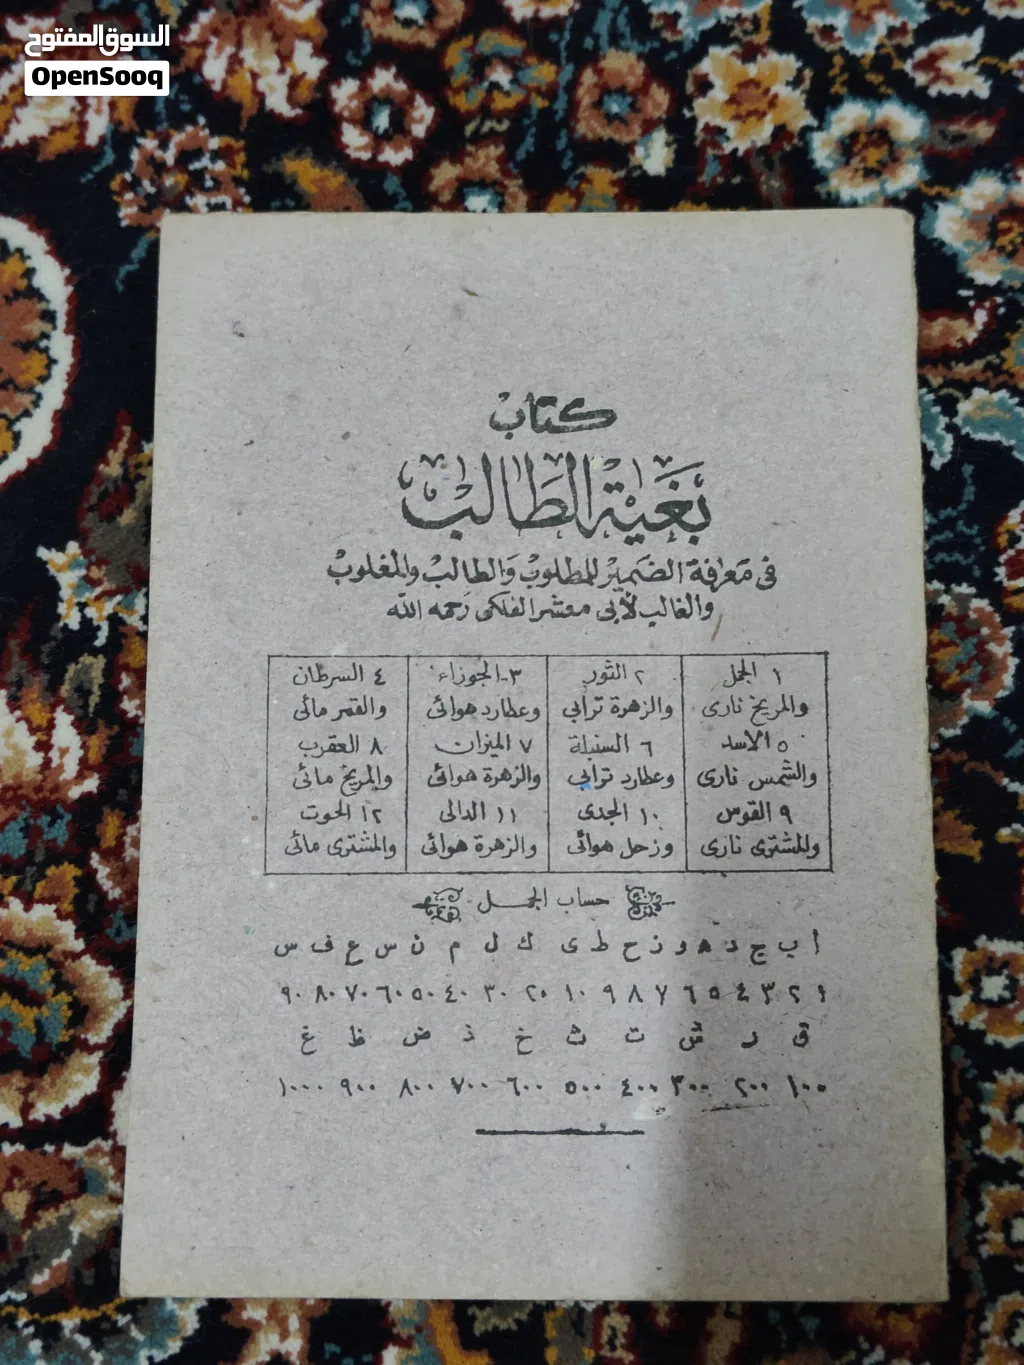 السوق المفتوح
OpenSooq
كتاب
بغية الطالب
فى معرفة الضمير للمطلوب والطالب والمغلوب
والغالب لأبى معشر الفلكى رحمه الله
١ الحمل ٢ الثور ٣ - الجوزاء ٤ السرطان
والمريخ نارى والزهرة ترابي وعطارد هوائى والقمر مائى
٥ الاسد ٦ السنبلة ٧ الميزان ٨ العقرب
والشمس نارى وعطارد ترابي والزهرة هوائى والمريخ مائى
٩ القوس ١٠ الجدى ١١ الدالى ١٢ الحوت
والمشترى نارى وزحل هوائى والزهرة هوائى والمشترى مائى
حساب الجمل
ا ب ج د ه و ز ح ط ى ك ل م ن س ع ف س
١ ٢ ٣ ٤ ٥ ٦ ٧ ٨ ٩ ١٠ ٢٠ ٣٠ ٤٠ ٥٠ ٦٠ ٧٠ ٨٠ ٩٠
ق ر ش ت ث خ ذ ض ظ غ
١٠٠ ٢٠٠ ٣٠٠ ٤٠٠ ٥٠٠ ٦٠٠ ٧٠٠ ٨٠٠ ٩٠٠ ١٠٠٠